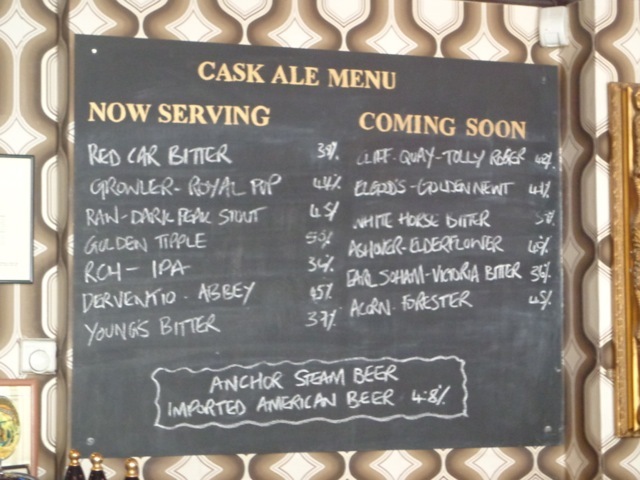 CASK ALE MENU
NOW SERVING
RED CAR BITTER 3.9%
GROWLER - ROYAL POP 4.4%
RAW - DARK PEAK STOUT 4.5%
GOLDEN TIPPLE
RCH - IPA 3.6%
DERVENTIO - ABBEY 4.5%
YOUNG'S BITTER 3.7%
COMING SOON
CLIFF - QUAY - TOLLY ROGER 4.2%
ELGOOD'S - GOLDEN NEWT 4.1%
WHITE HORSE BITTER
ASHOVER - ELDERFLOWER
EARL SOHAM - VICTORIA BITTER 3.6%
ACORN - FORESTER 4.5%
ANCHOR STEAM BEER
IMPORTED AMERICAN BEER 4.8%